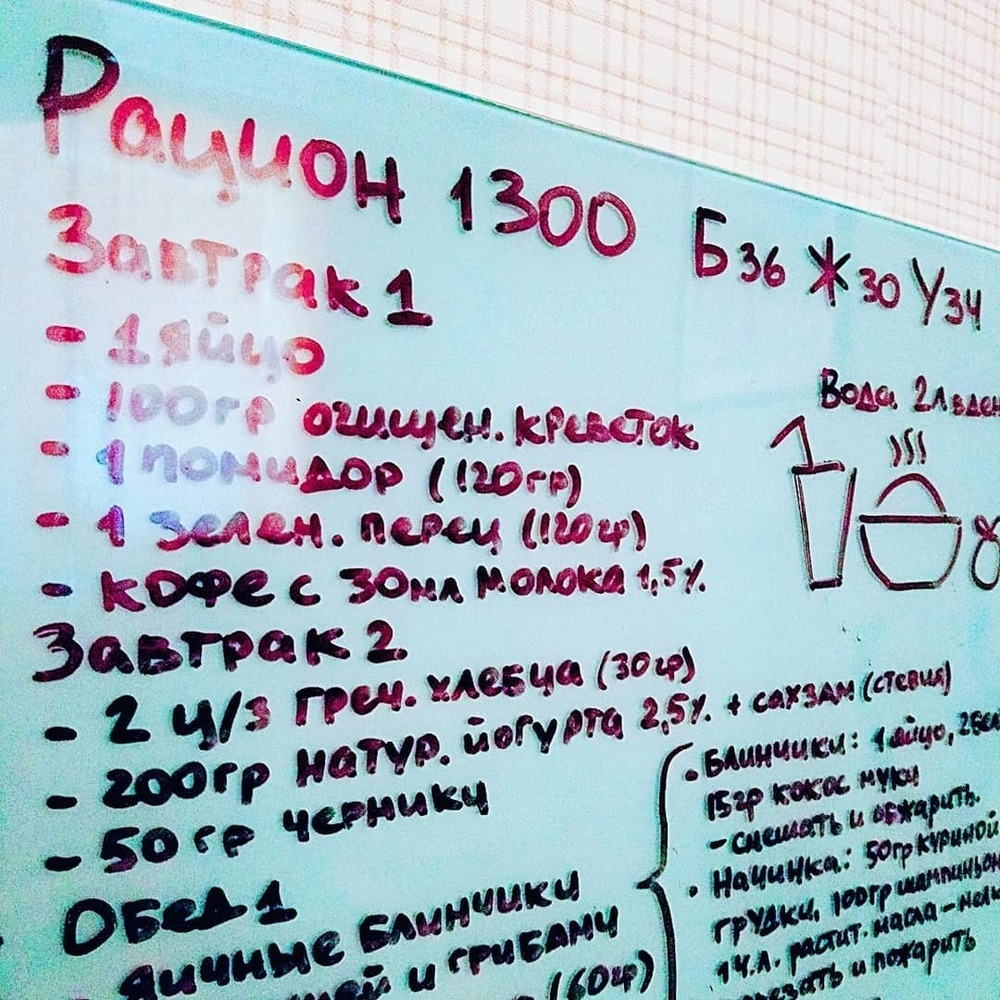 Рацион 1300 Б36 Ж30 У34
Завтрак 1
- 1 яйцо
- 100гр очищен. креветок
- 1 помидор (120гр)
- 1 зелен. перец (120гр)
- кофе с 30мл молока 1,5%
Вода 2л в ден
Завтрак 2
- 2 ц/з греч. хлебца (30гр)
- 200гр натур. йогурта 2,5% + сахзам (стевия)
- 50гр черники
Обед 1
яичные блинчики
и грибами
(60гр)
• Блинчики: 1 яйцо, 2 бел
15гр кокос муки
- смешать и обжарить.
• Начинка: 50гр куриной
грудки, 100гр шампиньон
1 ч.л. растит. масла -
и пожарить